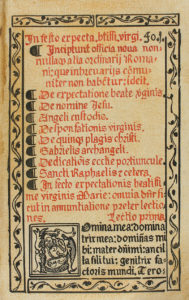 In festo expecta. btīssi. virgi. Fo.j.
¶ Incipiunt officia noua non
nullaqʒ alia ordinarij Roma
ni: que in breuiarijs cōmu
niter non habētur: ideſt,
¶ De expectatione beate virginis.
¶ De nomine Jesu.
¶ Angeli custodis.
¶ Desponsationis virginis.
¶ De quinqʒ plagis christi.
¶ Gabrielis archangeli.
¶ Dedicationis eccłe portiuncule.
¶ Sancti Raphaelis ⁊ cetera.
¶ In festo expectationis beatissi
me virginis Marie: omnia dn̄r si
cut in annuntiatione preter lectio
nes. Lectio prima.
Domina mea: domina
trix mea: dominās mi
hi: mater dn̄i mei: ancil
la filij tui: genitrix fa
ctoris mundi, Te ro-